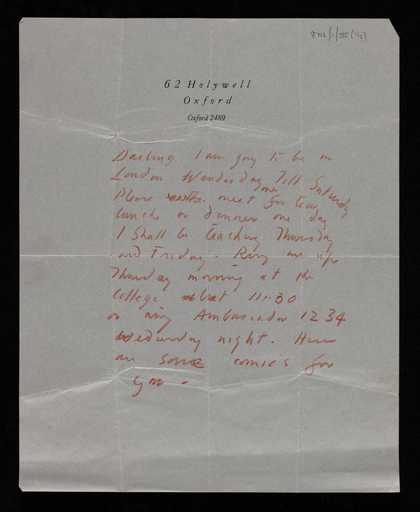 62 Holywell
Oxford
Oxford 2489
Darling I am going to be in
London Wendesday Till Saturday
Please meet me for tea,
lunch or dinner one day
I shall be teaching Thursday
and Friday. Ring me up
Thursday morning at the
College about 11.30
or ring Ambassador 1234
Wedensday night. Here
are some comics for
you.